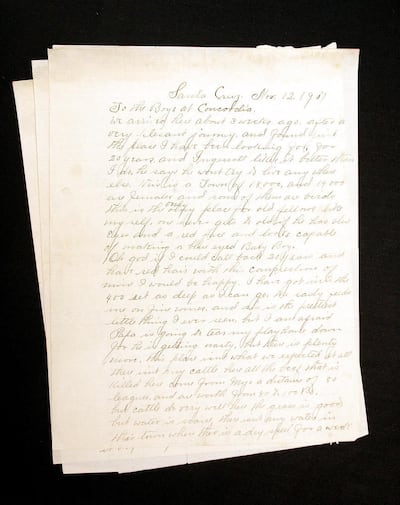 Santa Cruz, Nov. 12, 1911
To the Boys at Concordia.
We arrived here about 3 weeks ago, after a
very pleasant journey, and found just
the place I have been looking for, for
20 years, and Ingersoll likes it better than
I do, he says he wont try to live any where
else. This is a Town of 18,000, and 14,000
are females and some of them are birds
this is the only place for old fellows like
my self, one never gets so old if he has blue
eyes and a red face and looks capable
of making a blue eyed Baby Boy.
Oh god if I could call back 20 years and
have red hair with this complection of
mine I would be happy. I have got into the
400 set as deep as I can get, the lady
me on fine wines, and she is the prettiest
little thing I ever seen, but I am afraid
Papa is going to tear my play down
for he is getting nasty, but there is plenty
more, this place isnt what we expected at all
there isnt any cattle here all the beef that is
killed here come from Mojo a distance of 80
leagues, and are worth from 80 to 100 Bs.
but cattle do very well here the grass is good
but water is scarce, there isnt any water in
this town when there is a dry spell for a week